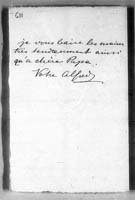 je vous baise les mains
très tendrement ainsi
qu'à chère Papa.
Votre Alfred